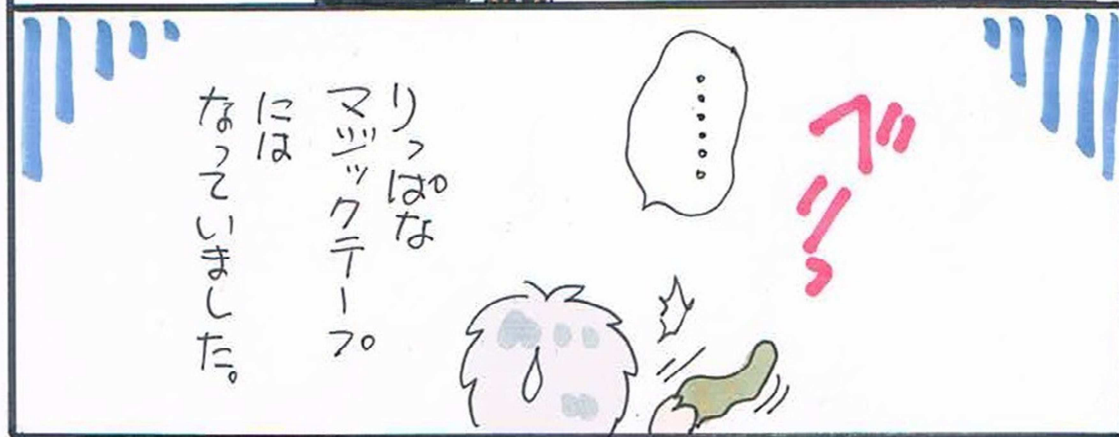 ベリっ
・・・・・・
りっぱな
マジックテープ
には
なっていました。